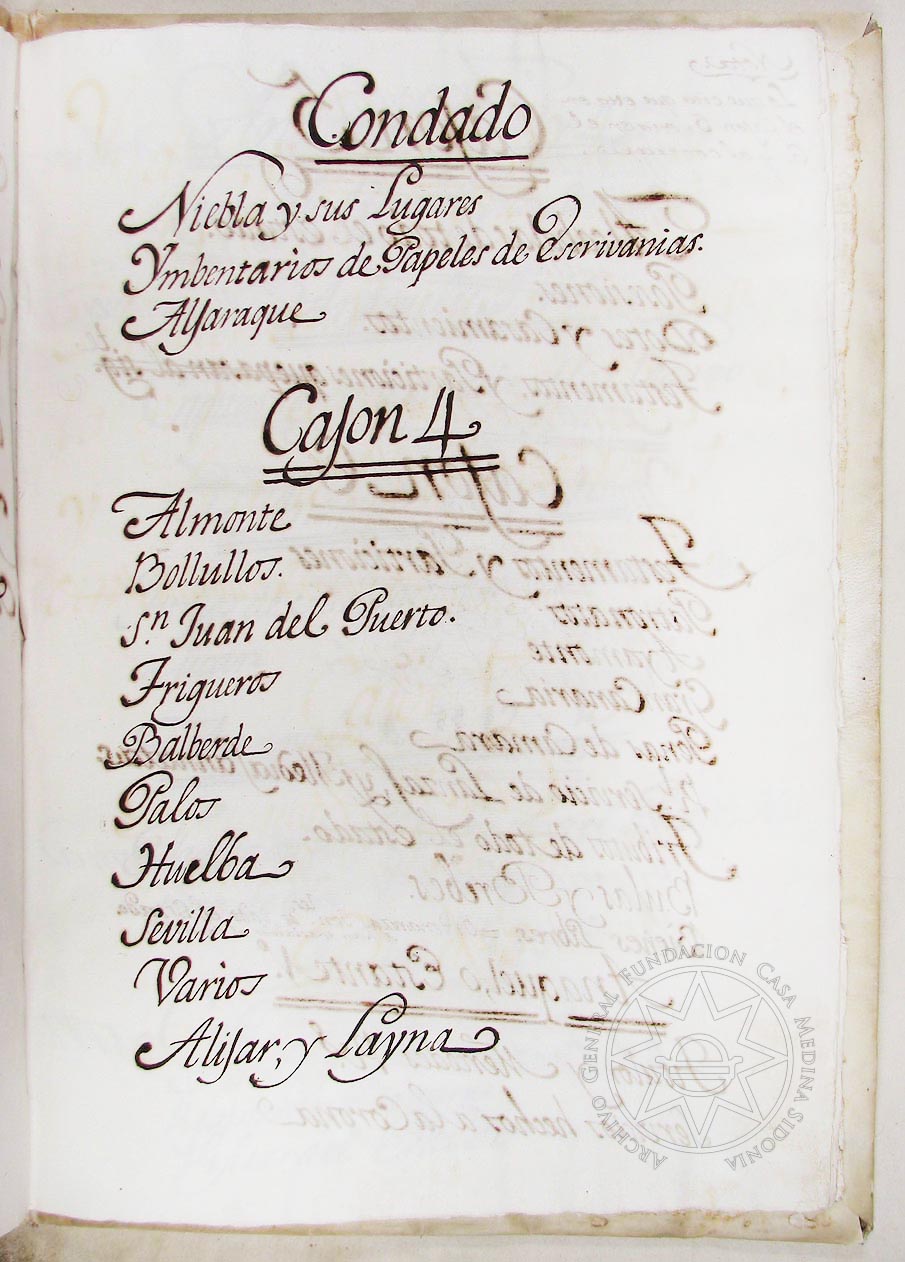 Condado
Niebla y sus Lugares
Ymbentarios de Papeles de Escrivanias.
Aljaraque
Cajon 4
Almonte
Bollullos.
Sn. Juan del Puerto.
Trigueros
Balberde
Palos
Huelba
Sevilla
Varios
Alijar, y Layna
ARCHIVO GENERAL FUNDACION CASA MEDINA SIDONIA